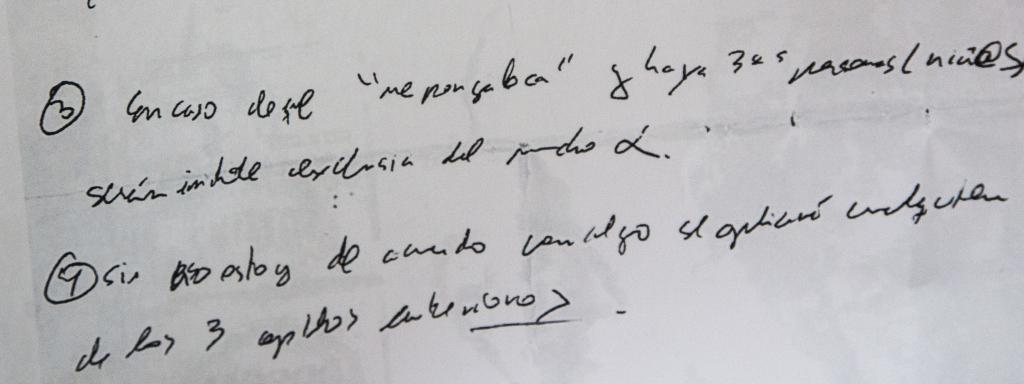 ③ En caso de qe "me ponga loca" y haya 3 as personas (niñ@s
serán del macho α.
④ Si no estoy de acuerdo con algo se aplicará cualquiera
de los 3 aptdos anteriores.